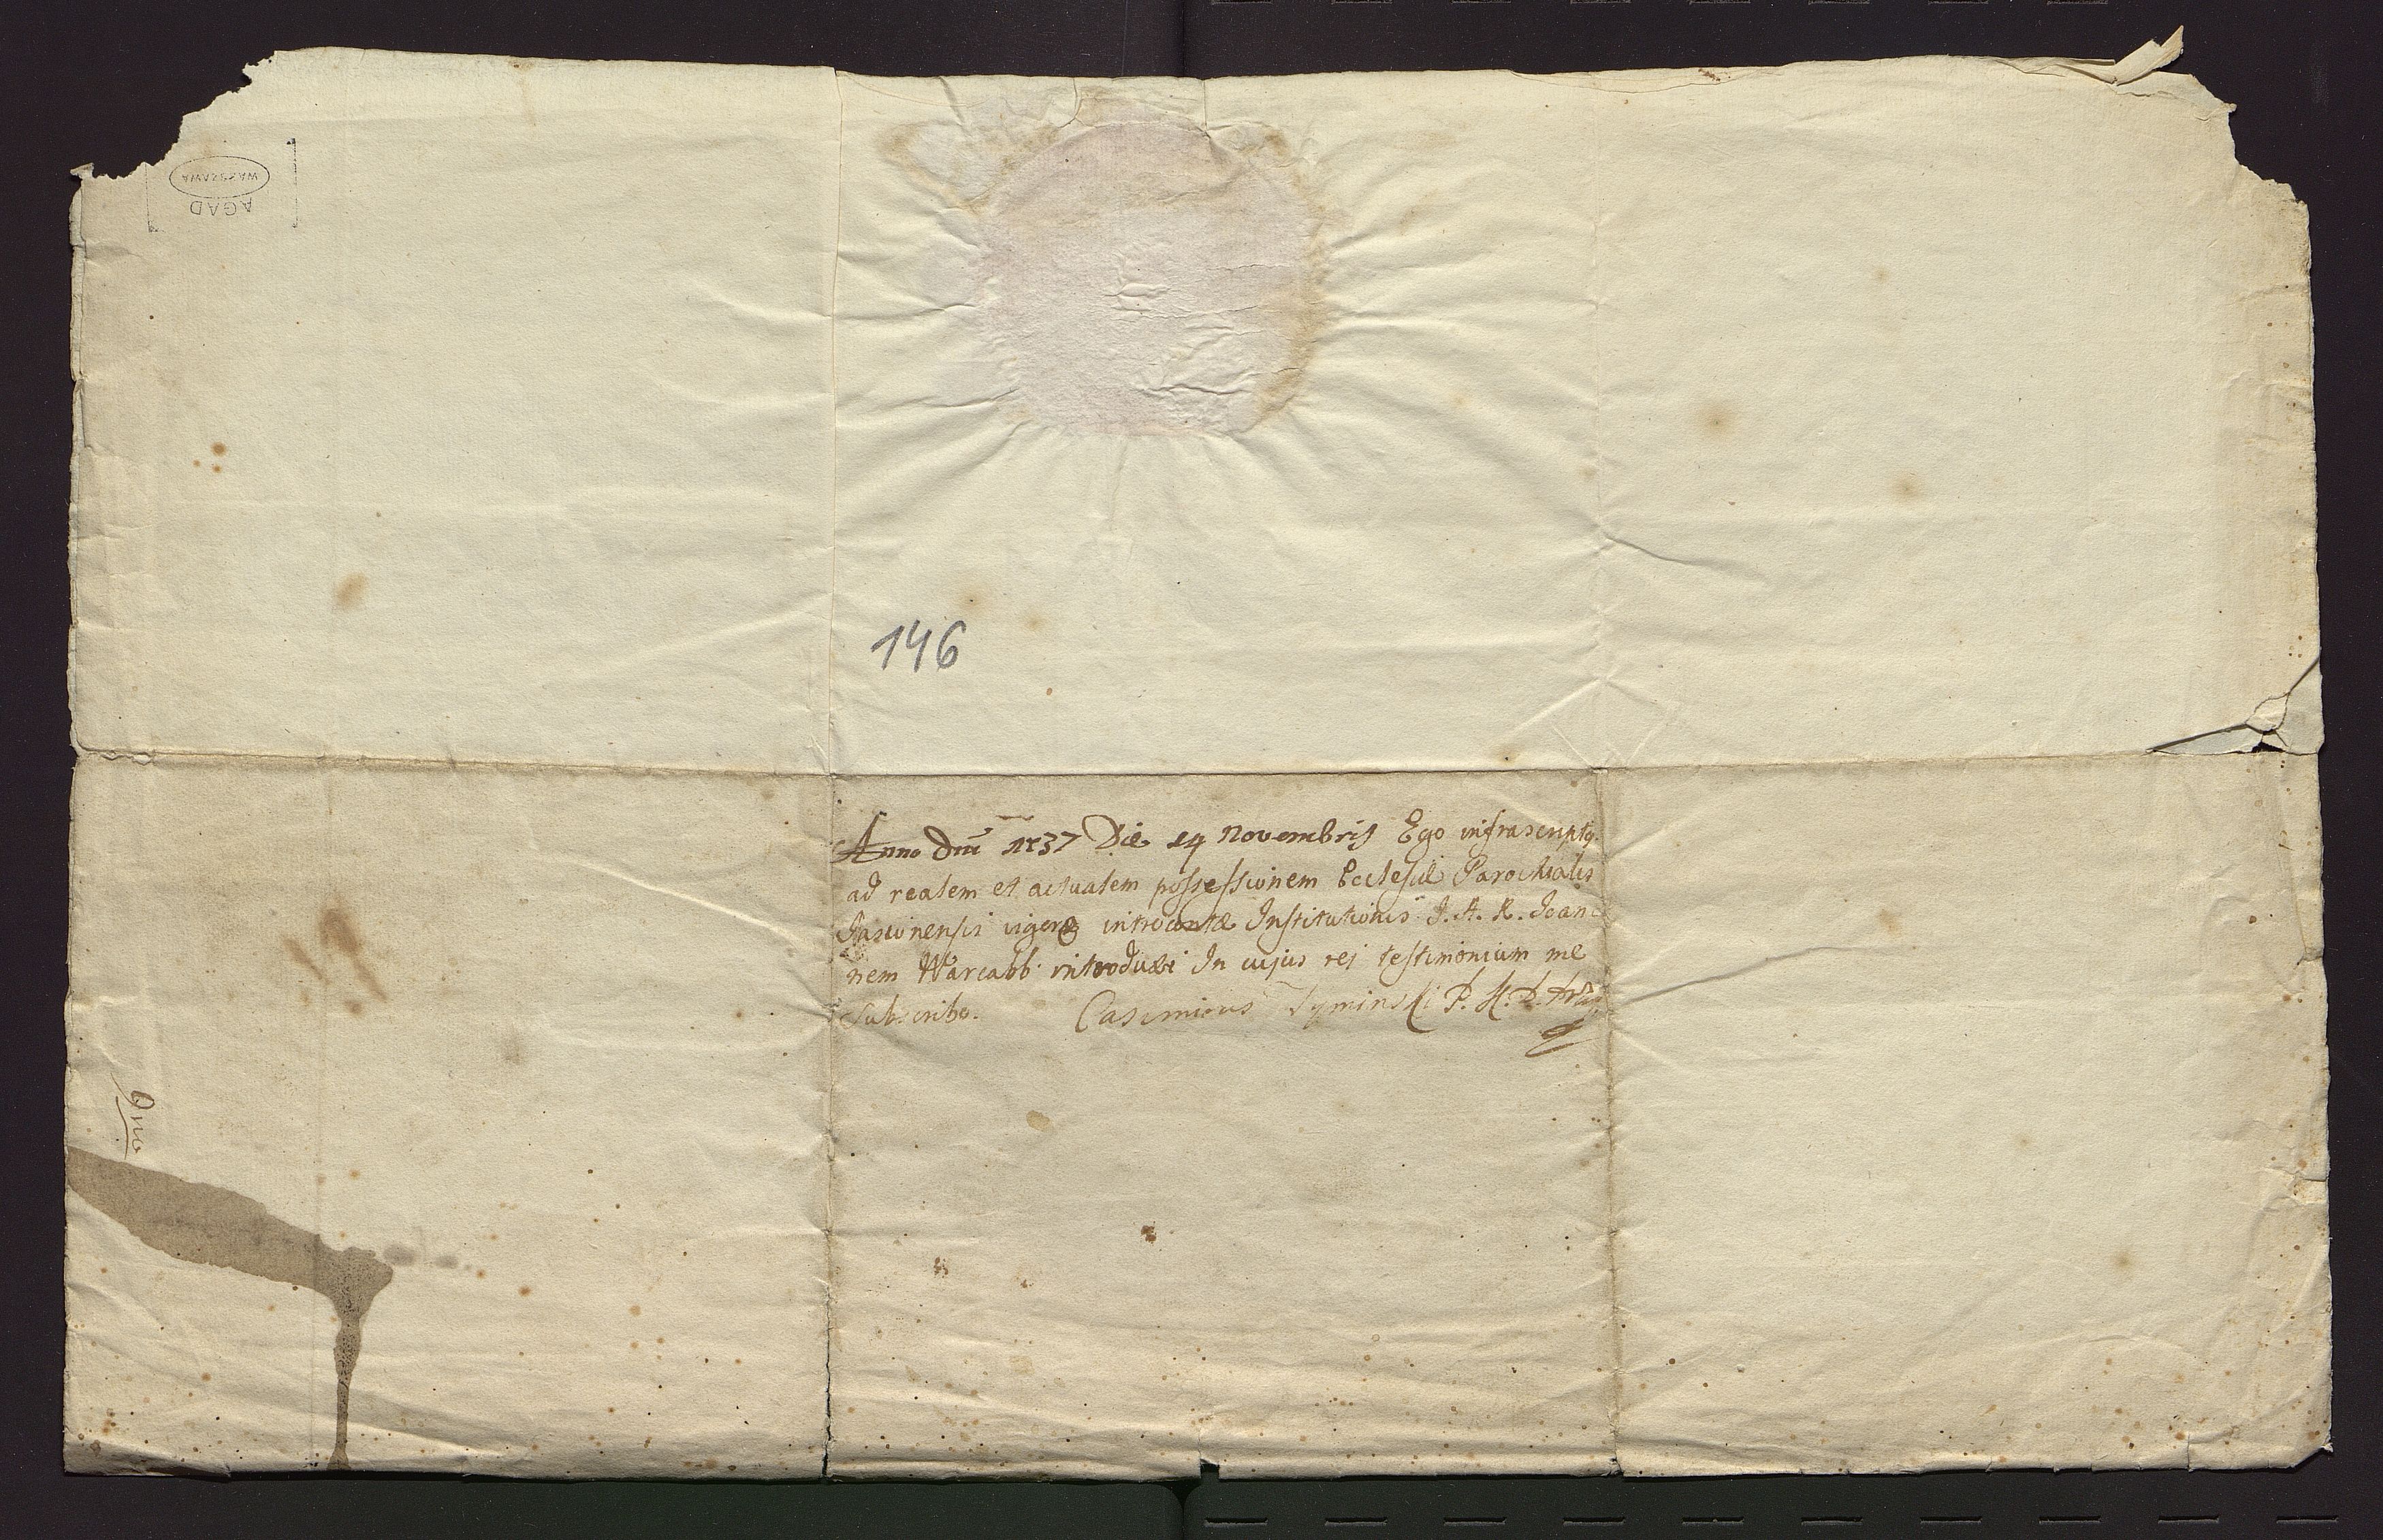 WARSZAWA
AGAD
146
Anno Dni 1737 Die 14 Novembris Ego infrascriptq
ad realem et actualem possessionem Ecclesiæ Parochialis
vigore Institutionis J. A. R. Joan
nem Warcabb introduxi In cujus rej testimonium me
Subscribo. Casimirus Tyminski P. K. D.